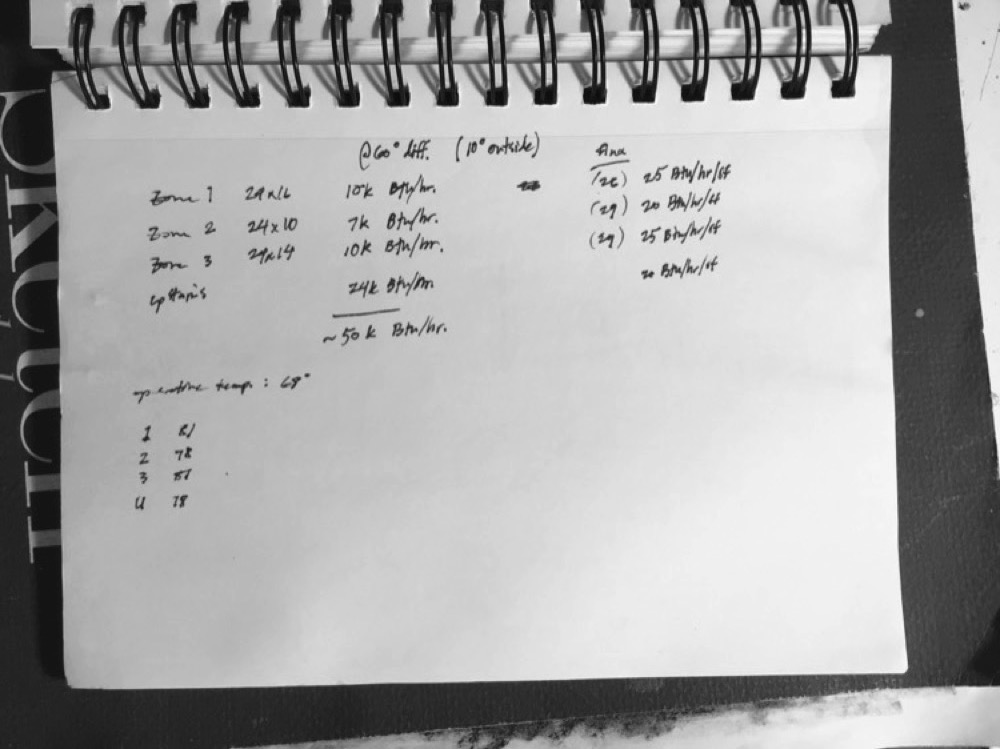 @60° diff. (10° outside)
Flux
Zone 1 24x16 10k Btu/hr. (26) 25 Btu/hr/sf
Zone 2 24x10 7k Btu/hr. (29) 20 Btu/hr/sf
Zone 3 29x14 10k Btu/hr. (29) 25 Btu/hr/sf
upstairs 24k Btu/hr. 20 Btu/hr/sf
~50k Btu/hr.
operative temp: 68°
1 81
2 78
3 81
U 78